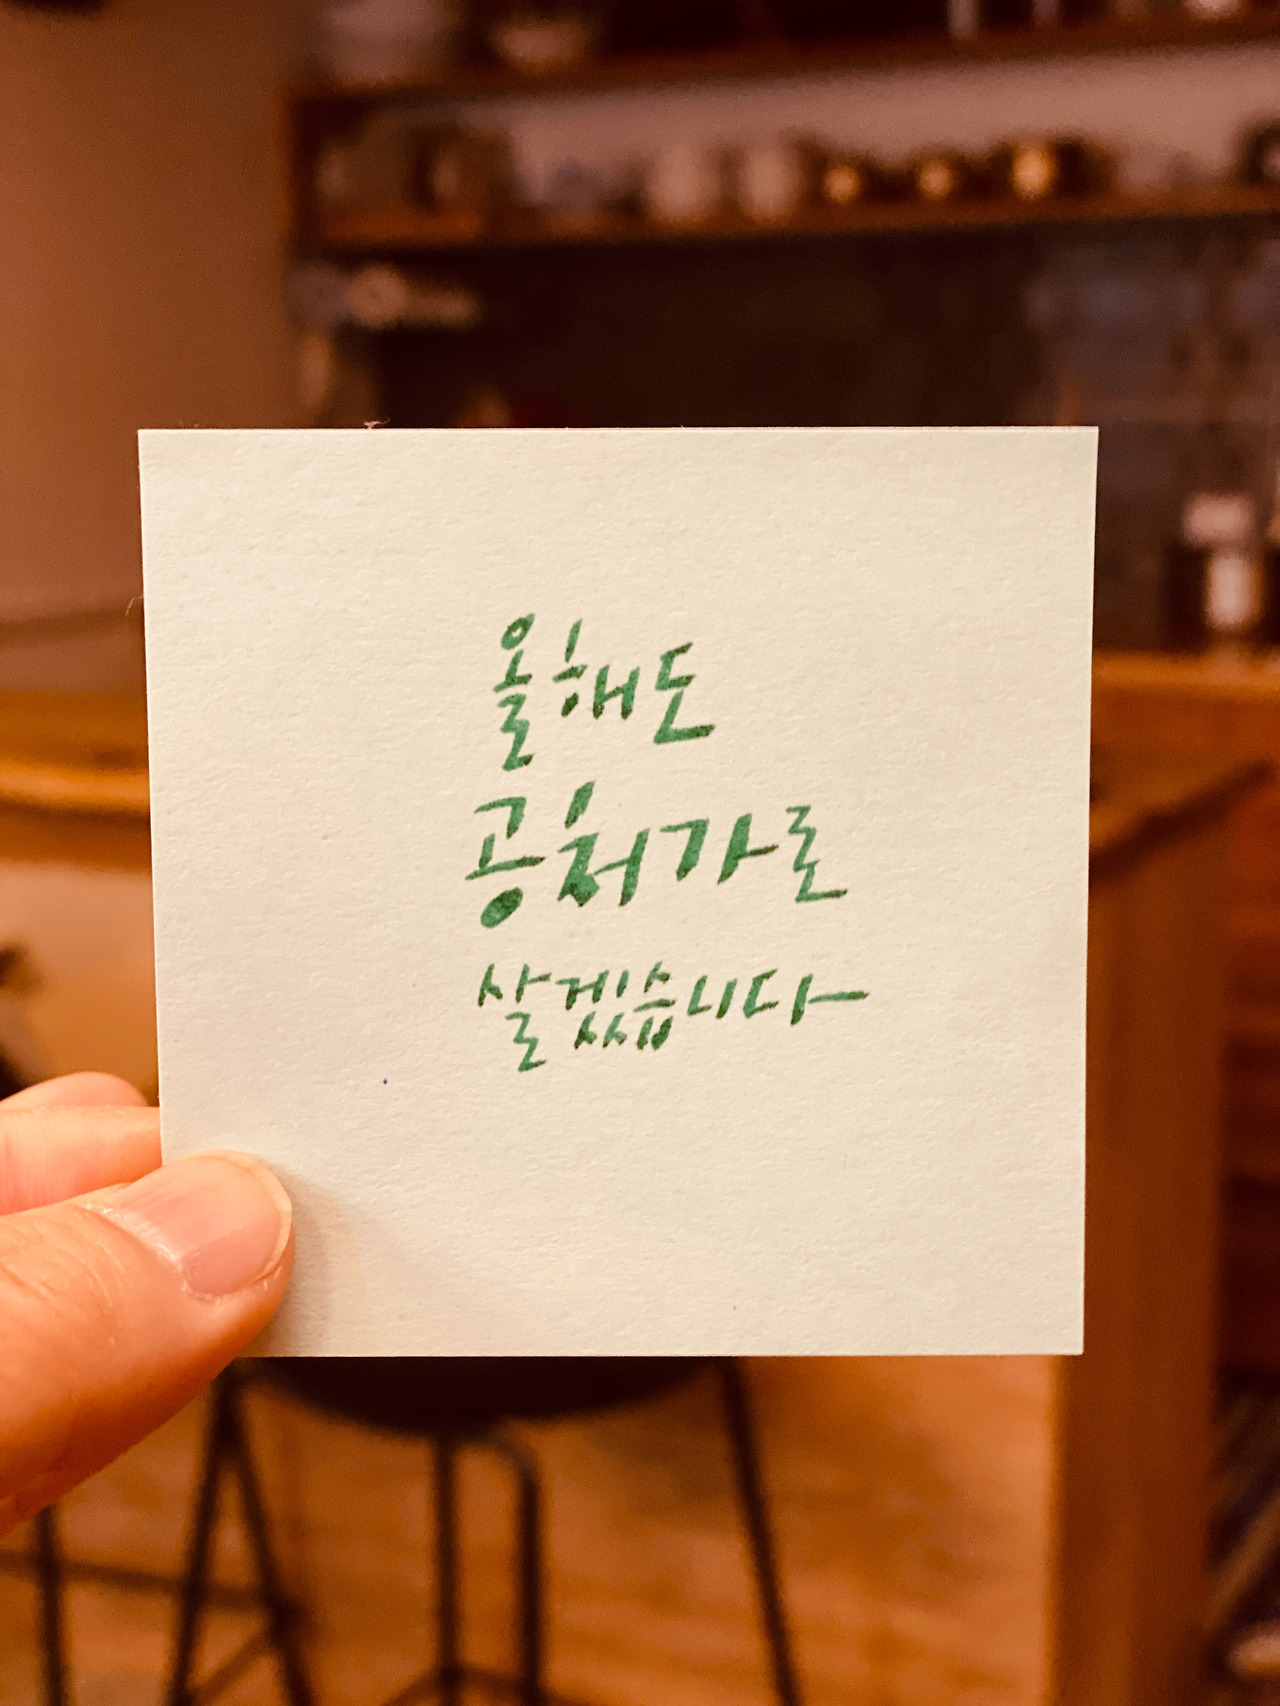 올해도
공처가로
살겠습니다